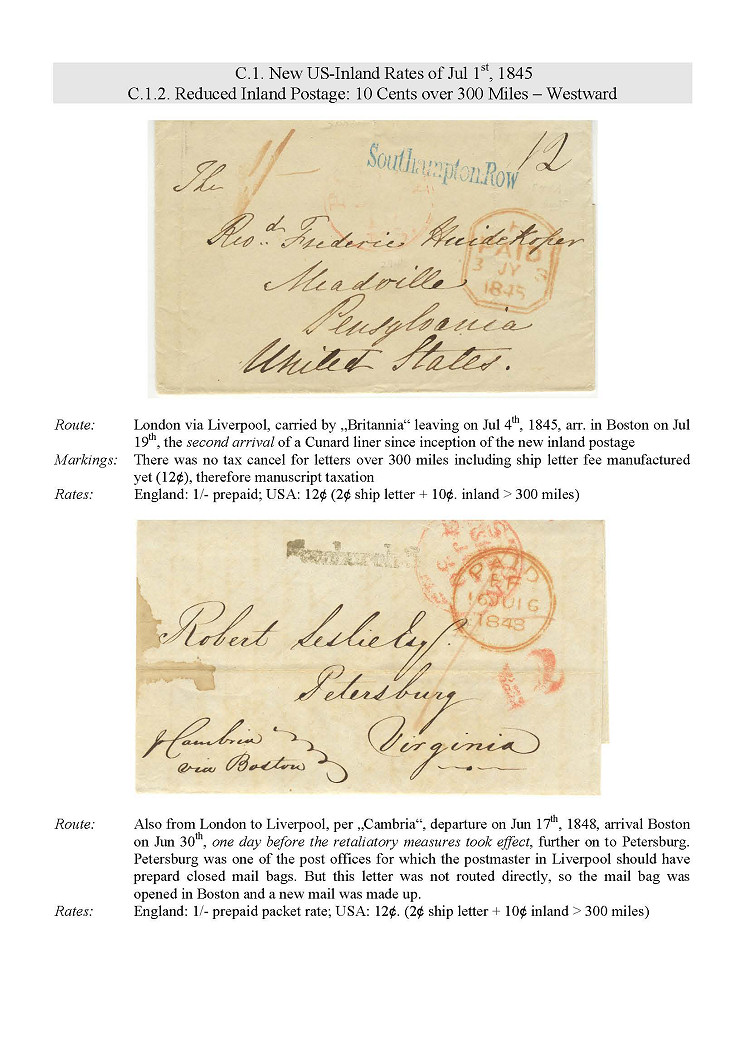 C.1. New US-Inland Rates of Jul 1st, 1845
C.1.2. Reduced Inland Postage: 10 Cents over 300 Miles – Westward
Southampton.Row
12
1/-
The
Revd. Frederic Huidekoper
PAID
3 JY 3
1845
Meadville
Pensylvania
United States.
Route: London via Liverpool, carried by „Britannia“ leaving on Jul 4th, 1845, arr. in Boston on Jul
19th, the second arrival of a Cunard liner since inception of the new inland postage
Markings: There was no tax cancel for letters over 300 miles including ship letter fee manufactured
yet (12¢), therefore manuscript taxation
Rates: England: 1/- prepaid; USA: 12¢ (2¢ ship letter + 10¢. inland > 300 miles)
PAID
16 JU 16
1848
Robert Leslie Esqr.
12
Petersburg
Virginia
p Cambria
via Boston
Route: Also from London to Liverpool, per „Cambria“, departure on Jun 17th, 1848, arrival Boston
on Jun 30th, one day before the retaliatory measures took effect, further on to Petersburg.
Petersburg was one of the post offices for which the postmaster in Liverpool should have
prepard closed mail bags. But this letter was not routed directly, so the mail bag was
opened in Boston and a new mail was made up.
Rates: England: 1/- prepaid packet rate; USA: 12¢. (2¢ ship letter + 10¢ inland > 300 miles)